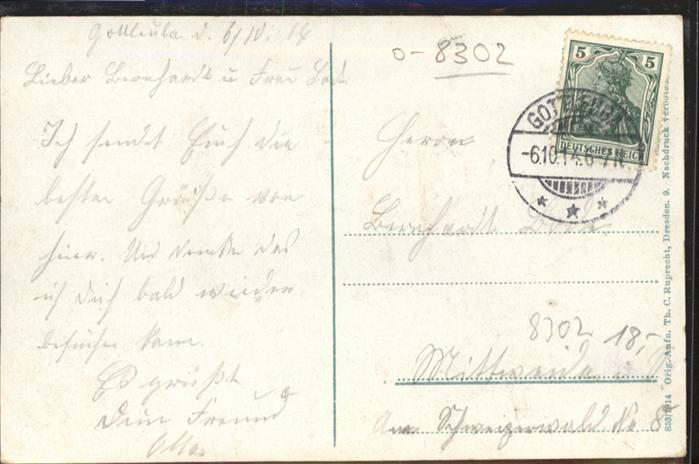 Gottleuba d. 6/10. 14
Lieber Bernhardt u Frau
Ich sendet Euch die
besten Grüße von
hier. Und denke das
ich Dich bald wieder
besuchen kann.
Es grüßt
Dein Freund
Otto
0-8302
5 5
DEUTSCHES REICH
GOTTLEUBA
-6.10.14.6-7N.
Herrn
Bernhardt
8302 18,-
Mittweida
Am Schweizerwald No 8
853/1914 Orig.-Aufn. Th. C. Ruprecht, Dresden. 9. Nachdruck verboten